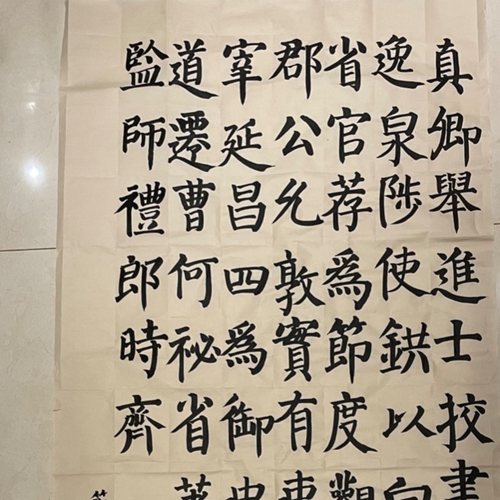 真卿舉進士挍書
逸泉陟使鉷以
省官荐爲節度觀
郡公允敦實有
宰延昌四爲御史
道遷曹何祕省
監師禮郎時齊